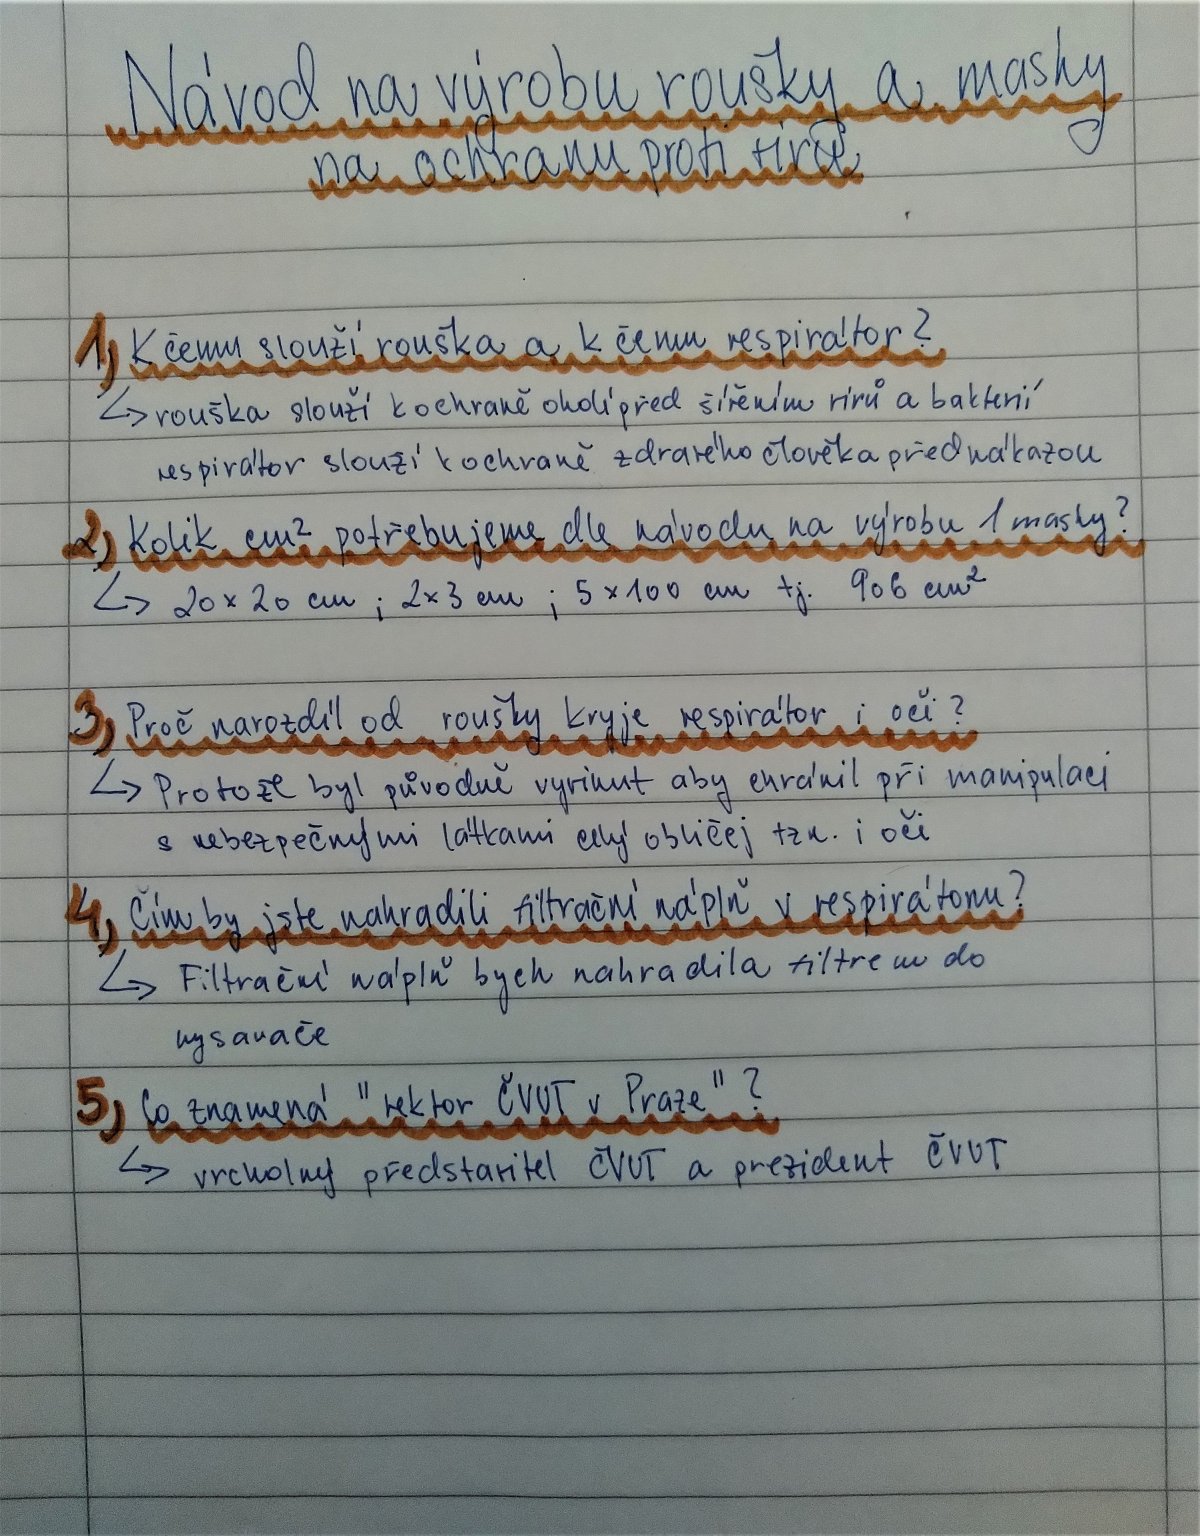 Návod na výrobu roušky a masky
na ochranu proti viru
1) K čemu slouží rouška a k čemu respirátor?
↳ rouška slouží k ochraně okolí před šířením virů a bakterií
respirátor slouží k ochraně zdravého člověka před nákazou
2) Kolik cm² potřebujeme dle návodu na výrobu 1 masky?
↳ 20×20 cm ; 2×3 cm ; 5×100 cm tj. 906 cm²
3) Proč narozdíl od roušky kryje respirátor i oči?
↳ Protože byl původně vyvinut aby chránil při manipulaci
s nebezpečnými látkami celý obličej tzn. i oči
4) Čím by jste nahradili filtrační náplň v respirátoru?
↳ Filtrační náplň bych nahradila filtrem do
vysavače
5) Co znamená "rektor ČVUT v Praze"?
↳ vrcholný představitel ČVUT a prezident ČVUT